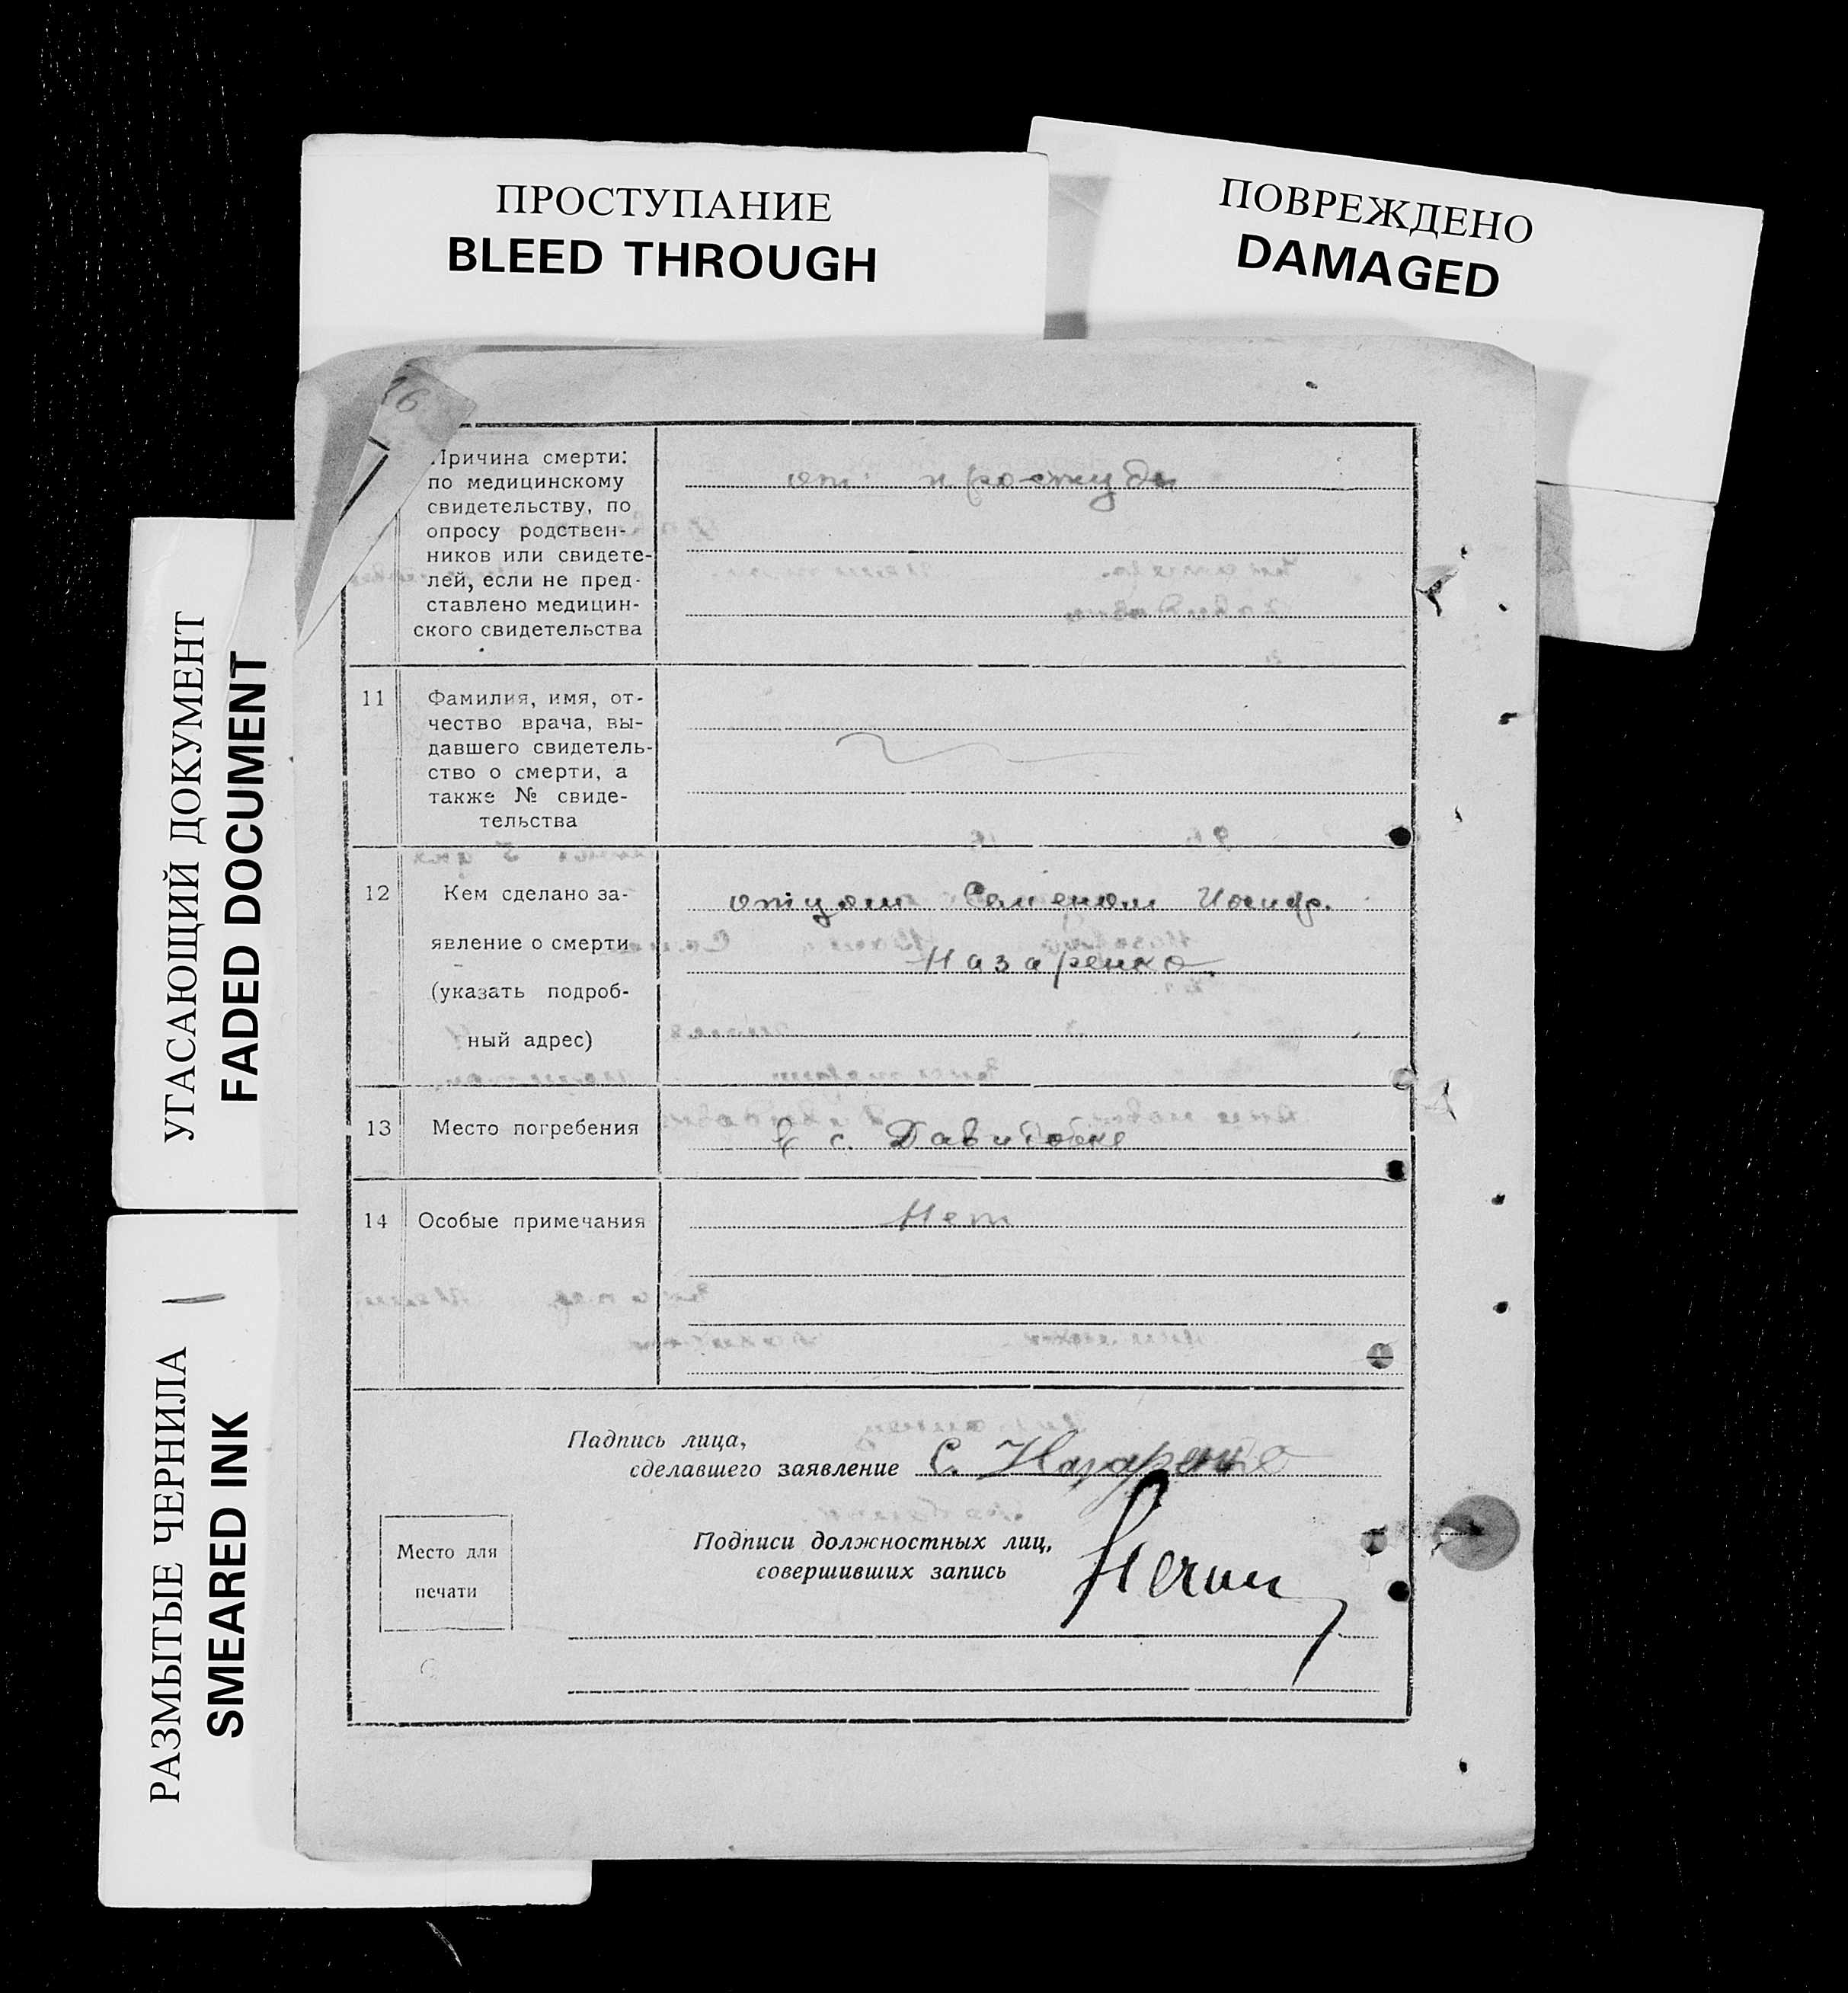 ПРОСТУПАНИЕ
BLEED THROUGH
ПОВРЕЖДЕНО
DAMAGED
УГАСАЮЩИЙ ДОКУМЕНТ
FADED DOCUMENT
РАЗМЫТЫЕ ЧЕРНИЛА
SMEARED INK
Причина смерти:
по медицинскому
свидетельству, по
опросу родствен-
ников или свидете-
лей, если не пред-
ставлено медицин-
ского свидетельства
от простуды
11
Фамилия, имя, от-
чество врача, вы-
давшего свидетель-
ство о смерти, а
также № свиде-
тельства
12
Кем сделано за-
явление о смерти
(указать подроб-
ный адрес)
отцом Семеном Иосиф.
Назаренко.
13
Место погребения
в с. Давидовке
14
Особые примечания
Нет
Падпись лица,
сделавшего заявление С. Назаренко
Место для
печати
Подписи должностных лиц,
совершивших запись